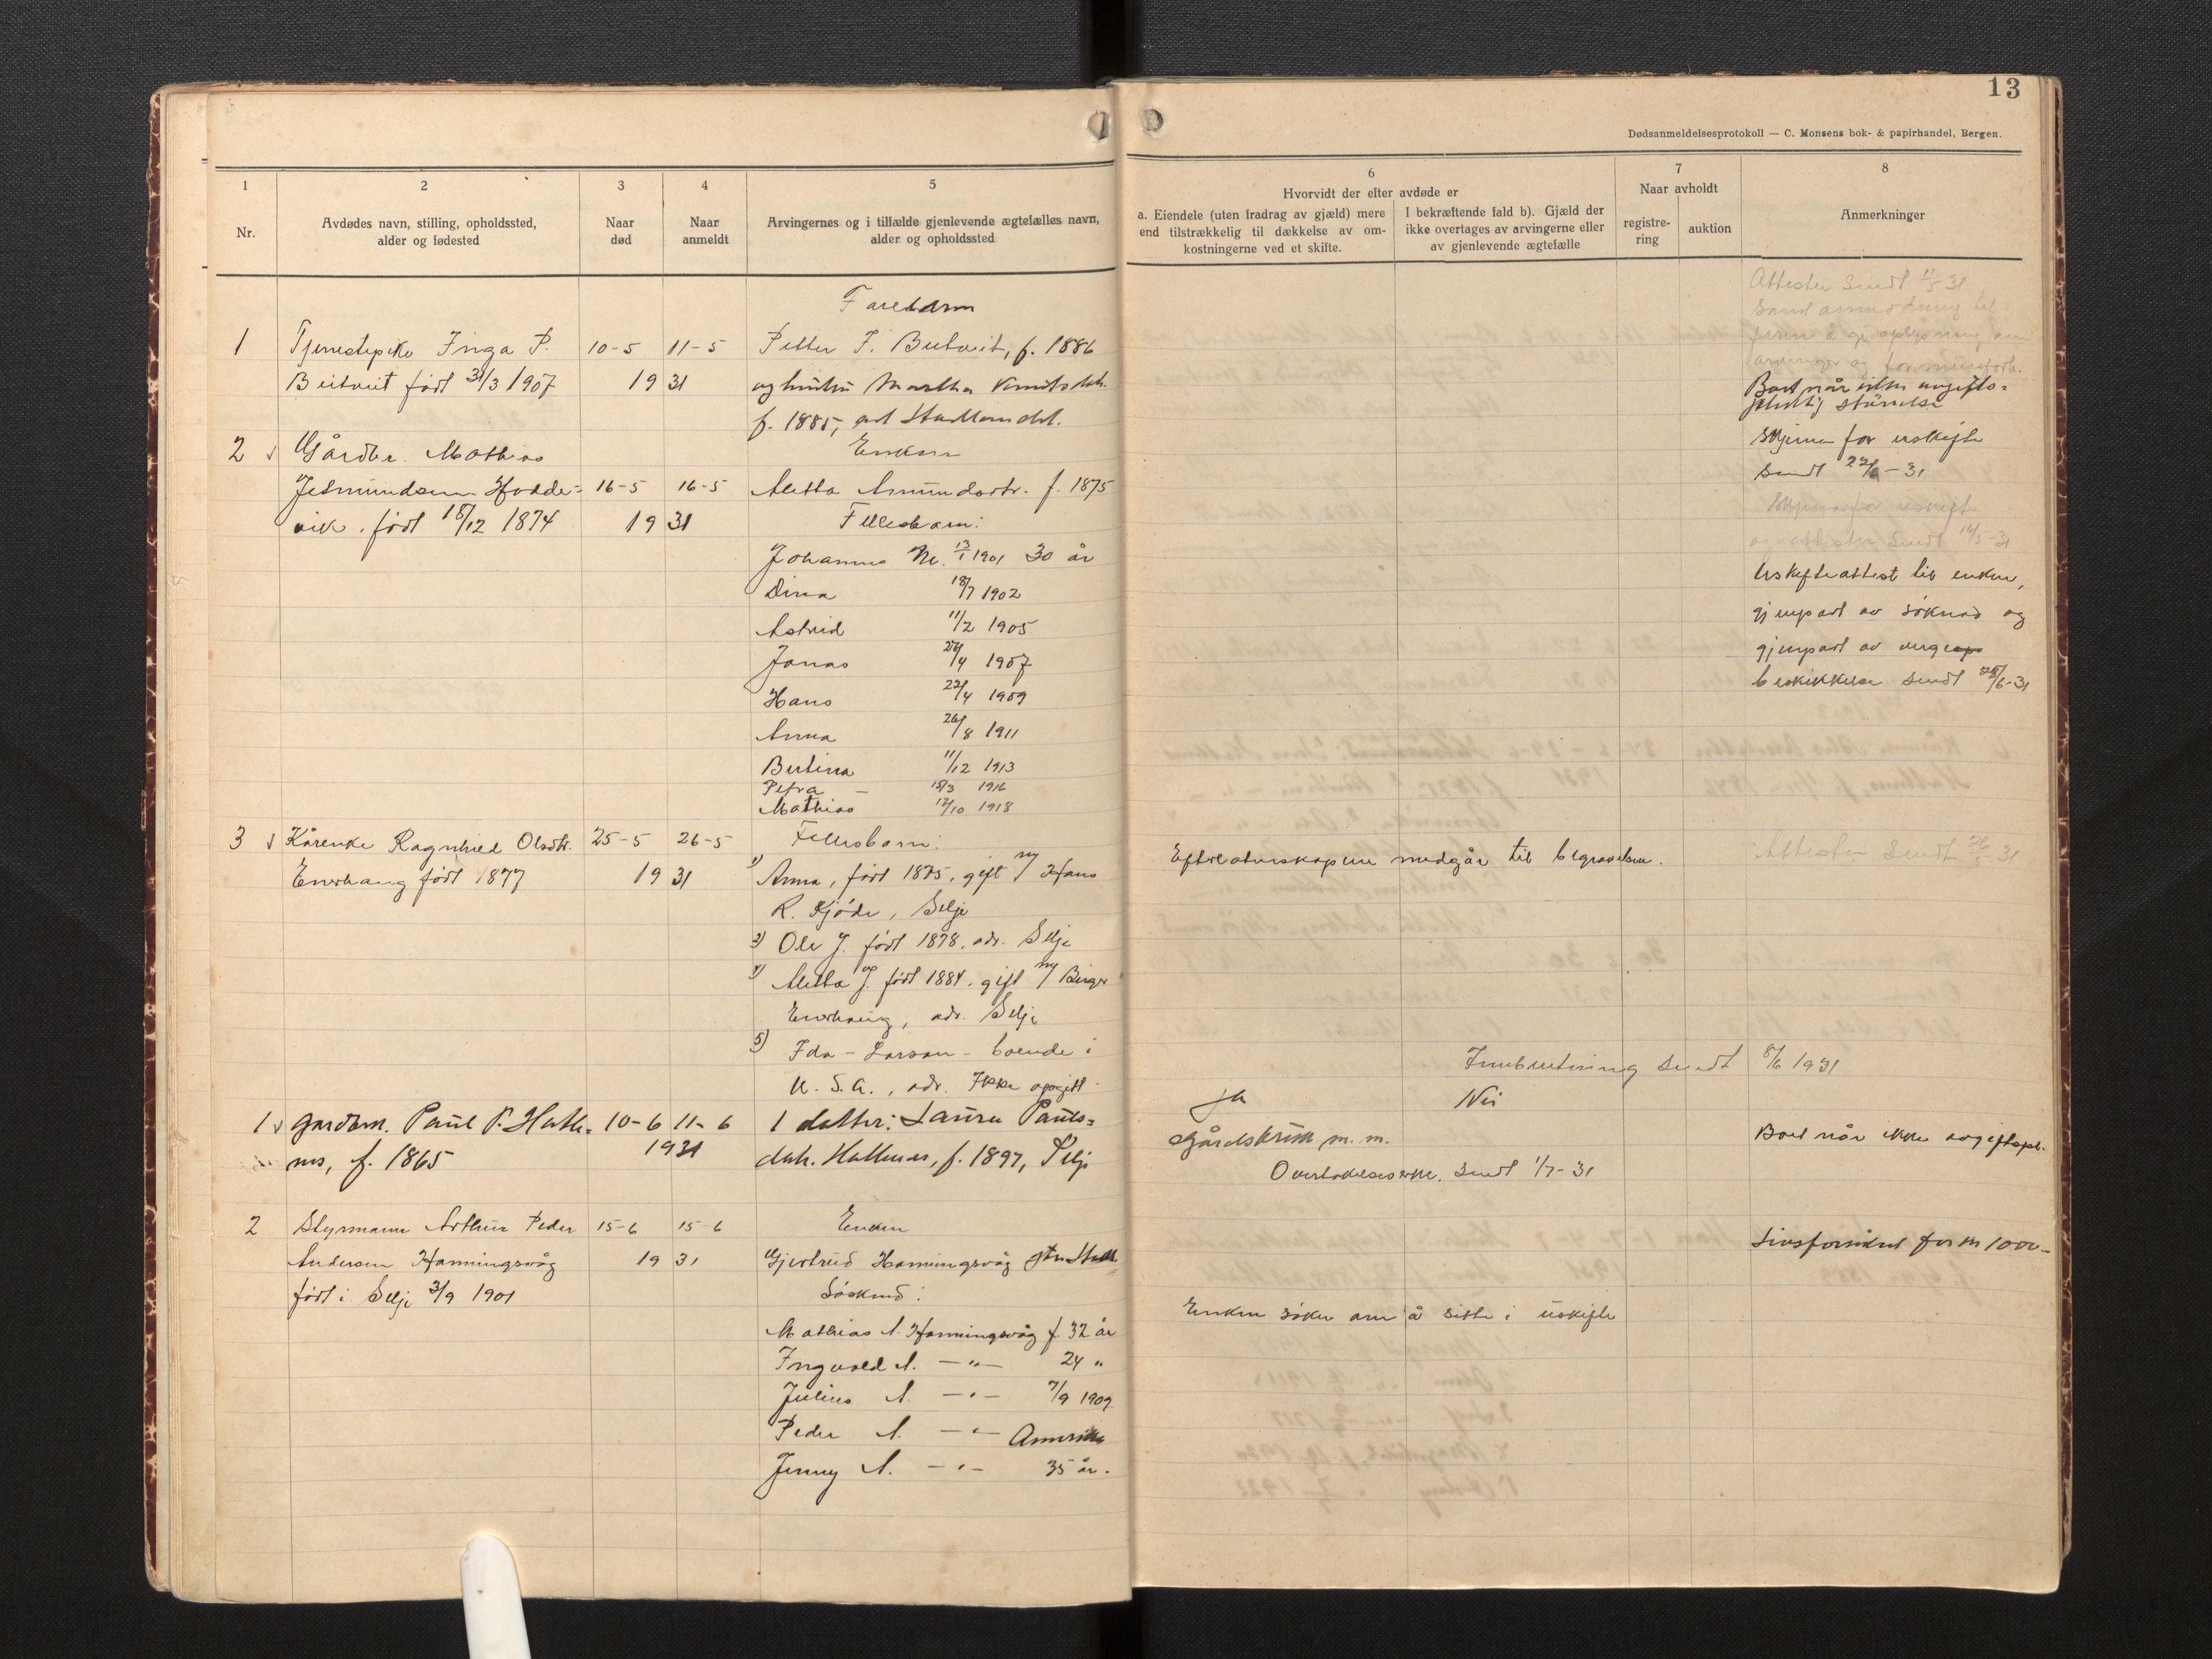 13
Dødsanmeldelsesprotokoll — C. Monsens bok- & papirhandel, Bergen.
1
Nr.
2
Avdødes navn, stilling, opholdssted,
alder og fødested
3
Naar
død
4
Naar
anmeldt
5
Arvingernes og i tilfælde gjenlevende ægtefælles navn,
alder og opholdssted
6
Hvorvidt der efter avdøde er
a. Eiendele (uten fradrag av gjæld) mere
end tilstrækkelig til dækkelse av om-
kostningerne ved et skifte.
I bekræftende fald b). Gjæld der
ikke overtages av arvingerne eller
av gjenlevende ægtefælle
7
Naar avholdt
registre-
ring
auktion
8
Anmerkninger
1
Tjenestepike Inga P.
født 31/3 1907
10-5 11-5
19 31
Petter J. f. 1886
og hustru Martha
f. 1885,
Attester sendt 11/5 31
Boet når ikke avgifts-
pliktig størrelse
2
Gårdbr. Mathias
Jetmundsen Hodde-
vik. født 18/12 1874
16-5 16-5
19 31
Enken
Aletta Amundsdtr. f. 1875
Fellesbarn:
Johannes M. 13/1 1901 30 år
Dina 18/7 1902
Astrid 11/2 1905
Jonas /4 1907
Hans 22/4 1909
Anna 26/8 1911
Bertina 11/12 1913
Petra — 18/3 1916
Mathias 12/10 1918
Skjema for uskifte
sendt 22/6 - 31
Skjema for uskift
og attester sendt 16/5-31
Uskifteattest til enken,
gjenpart av søknad og
gjenpart av verge
beskikkelse sendt 25/6-31
3
Kårenke Ragnhild Olsdtr.
Enerhaug født 1877
25-5 26-5
19 31
Fellesbarn:
1) Anna, født 1875, gift m/ Hans
R. Kjøde, Selje
3) Ole J. født 1878. adr. Selje
4) Aletta J. født 1884. gift m/ Birger
Enerhaug, adr. Selje
5) Ida - Larson - boende i
U. S. A., adr. Ikke opgitt
Efterlatenskapene medgår til begravelsen.
Attester sendt 26/5 31
Innberetning sendt 8/6 1931
1
Gardbr. Paul P. Hatle-
nes, f. 1865
10-6 11-6
1931
1 datter: Laura Pauls-
datr. Hatlenes, f. 1897, Selje
Ja
Nei
Gårdsbruk m. m.
Overtakelseserkl. sendt 1/7-31
Boet når ikke avgiftspl.
2
Styrmann Arthur Peder
Andersen Hamningsvåg
født i Selje 3/9 1901
15-6 15-6
19 31
Enken
Gjertrud Hamningsvåg
Søskend:
Mathias A. Hamningsvåg f. 32 år
Ingvald A. —"— 24 "
Julius A. —"— 7/9 1909
Peder A. —"— Amerika
Jenny A. —"— 35 år.
Enken søker om å sitte i uskifte
Livsforsikret for kr 1000-